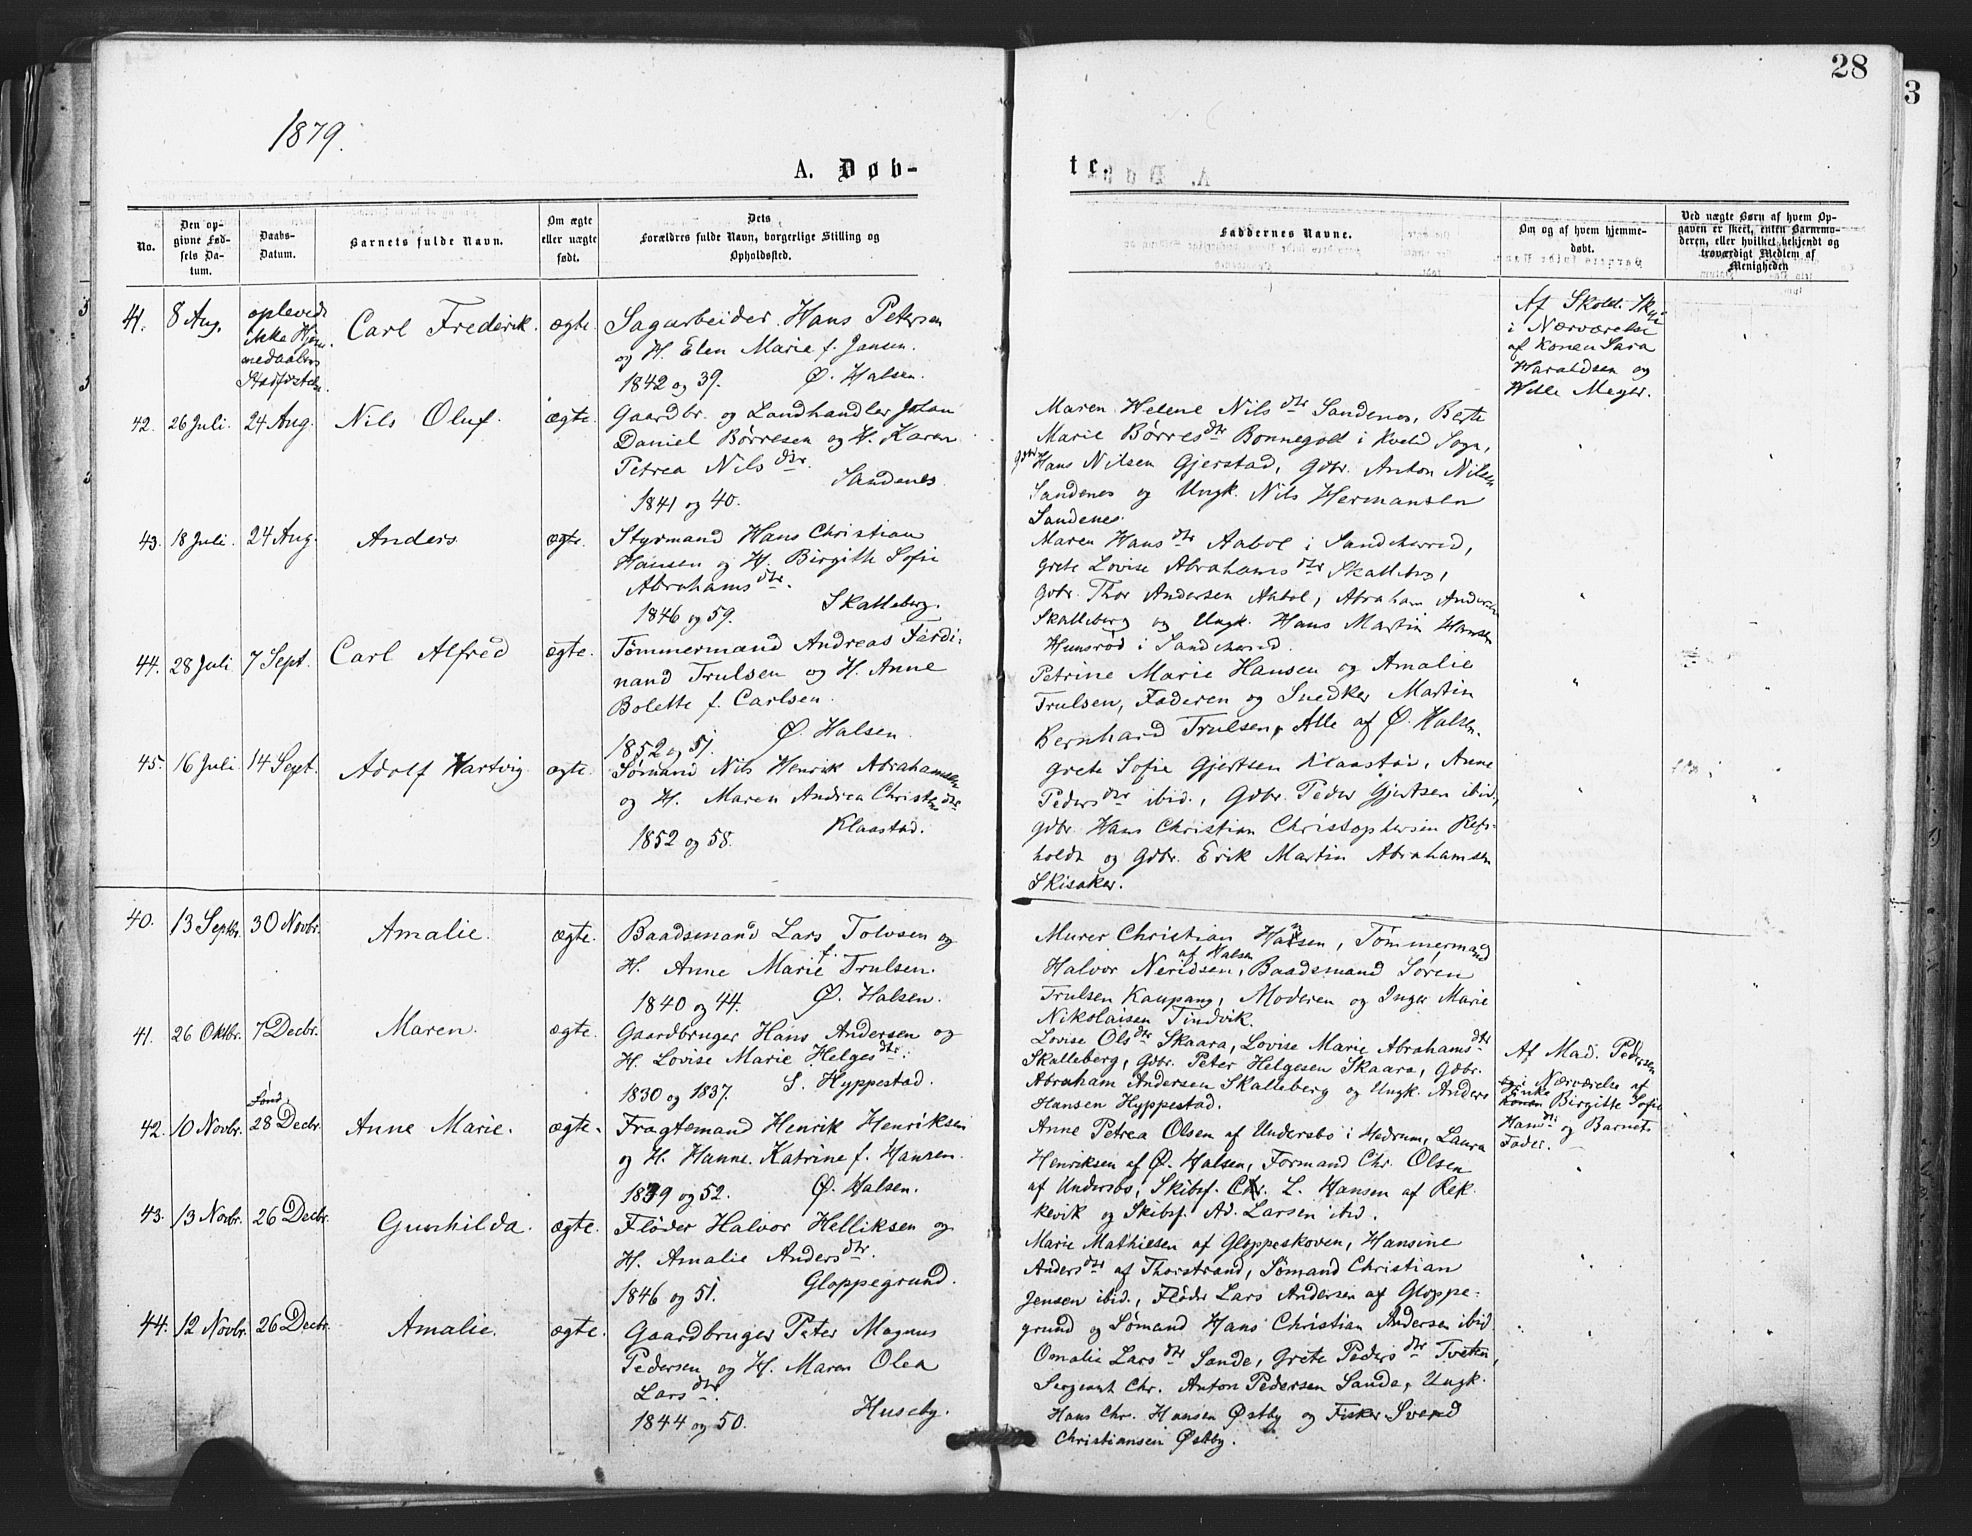 28
3
1879.
A. Døb-
te.
No.
Den op-
givne Fød-
sels Da-
tum.
Daabs-
Datum.
Barnets fulde Navn.
Om ægte
eller uægte
født.
Dets
Forældres fulde Navn, borgerlige Stilling og
Opholdssted.
Faddernes Navne.
Om og af hvem hjemme-
døbt.
Ved uægte Børn af hvem Op-
gaven er skeet, enten Barnemo-
deren, eller hvilket bekjendt og
troværdigt Medlem af
Menigheden
41. 8 Aug.
oplevede
ikke Hjem-
medaabens
Stadfæstelse
Carl Frederik. ægte.
Sagarbeider Hans Petersen
og H. Elen Marie f. Jansen.
1842 og 39. Ø. Halsen.
Af Skoleh.
i Nærværelse
af Konen Sara
Haraldsen og
Meyer.
42. 26 Juli. 24 Aug. Nils Oluf. ægte.
Gaardbr. og Landhandler Johan
Daniel Børresen og H. Karen
Petrea Nilsdtr.
Sandenes
1841 og 40.
Maren Helene Nilsdtr Sandenes, Berte
Marie Børresdtr Bonnegolt i Kveld Sogn,
Gdbr Hans Nilsen Gjerstad, Gdbr. Anton Nilsen
Sandenes og Ungk. Nils Hermansen
Sandenes.
43. 18 Juli. 24 Aug. Anders ægte.
Styrmand Hans Christian
Hansen og H. Birgith Sofie
Abrahamsdtr.
1846 og 59. Skalleberg.
Maren Hansdtr Aabol i Sandeherred,
Grete Lovise Abrahamsdtr Skalleberg,
Gdbr. Thor Andersen Aabol, Abraham Andersen
Skalleberg og Ungk. Hans Martin Hansen
Hunsrød i Sandeherred.
44. 28 Juli 7 Sept. Carl Alfred ægte.
Tømmermand Andreas Ferdi-
nand Trulsen og H. Anne
Bolette f. Carlsen.
Ø. Halsen.
1852 og 51.
Petrine Marie Hansen og Amalie
Trulsen, Faderen og Snedker Martin
Bernhard Trulsen, Alle af Ø. Halsen.
45. 16 Juli 14 Sept. Adolf Hartvig ægte.
Sømand Nils Henrik Abrahamsen
og H. Maren Andrea Christensdtr
Klaastad.
1852 og 58.
Grete Sofie Gjertsen Klaastad, Anne
Pedersdtr ibid., Gdbr. Peder Gjertsen ibid,
Gdbr. Hans Christian Christophersen Refs-
holdt og Gdbr. Erik Martin Abrahamsen
Skisaker.
40. 13 Septbr. 30 Novbr. Amalie. ægte.
Baadsmand Lars Tolvsen og
H. Anne Marie f. Trulsen.
1840 og 44. Ø. Halsen.
Murer Christian Hansen, Tømmermand
af Halsen
Halvor Neridsen, Baadsmand Søren
Trulsen Kaupang, Moderen og Inger Marie
Nikolaisen Tindvik.
41. 26 Oktbr. 7 Decbr. Maren. ægte.
Gaardbruger Hans Andersen og
H. Lovise Marie Helgesdtr.
1830 og 1837. S. Hyppestad.
Lovise Olsdtr Skaara, Lovise Marie Abrahamsdtr
Skalleberg, Gdbr. Peter Helgesen Skaara, Gdbr.
Abraham Andersen Skalleberg og Ungk. Anders
Hansen Hyppestad.
Af Mad. Pedersen
i Nærværelse af
Enke
Konen Birgitte Sofie
Hansdtr og Barnets
Fader.
42. 10 Novbr.
Sønd.
28 Decbr. Anne Marie. ægte.
Fragtemand Henrik Henriksen
og H. Hanne Katrine f. Hansen.
1839 og 52. Ø. Halsen.
Anne Petrea Olsen af Undersbo i Hedrum, Laura
Henriksen af Ø. Halsen, Formand Chr. Olsen
af Undersbo, Skibsf. Chr. L. Hansen af Rek-
kevik og Skibsf. Ad. Larsen ibid.
43. 13 Novbr. 26 Decbr. Gunhilda. ægte.
Fløder Halvor Helliksen og
H. Amalie Andersdtr.
1846 og 51. Gloppegrund.
Marie Mathiesen af Gloppeskoven, Hansine
Andersdtr af Thorstrand, Sømand Christian
Jensen ibid., Fløder Lars Andersen af Gloppe-
grund og Sømand Hans Christian Andersen ibid
44. 12 Novbr. 26 Decbr. Amalie. ægte.
Gaardbruger Peter Magnus
Pedersen og H. Maren Olea
Larsdtr.
Huseby.
1844 og 50.
Omalie Larsdtr Sande, Grete Pedersdtr Tveten,
Sergeant Chr. Anton Pedersen Sande, Ungk.
Hans Chr. Hansen Østby og Fisker Svend
Christiansen Østby.